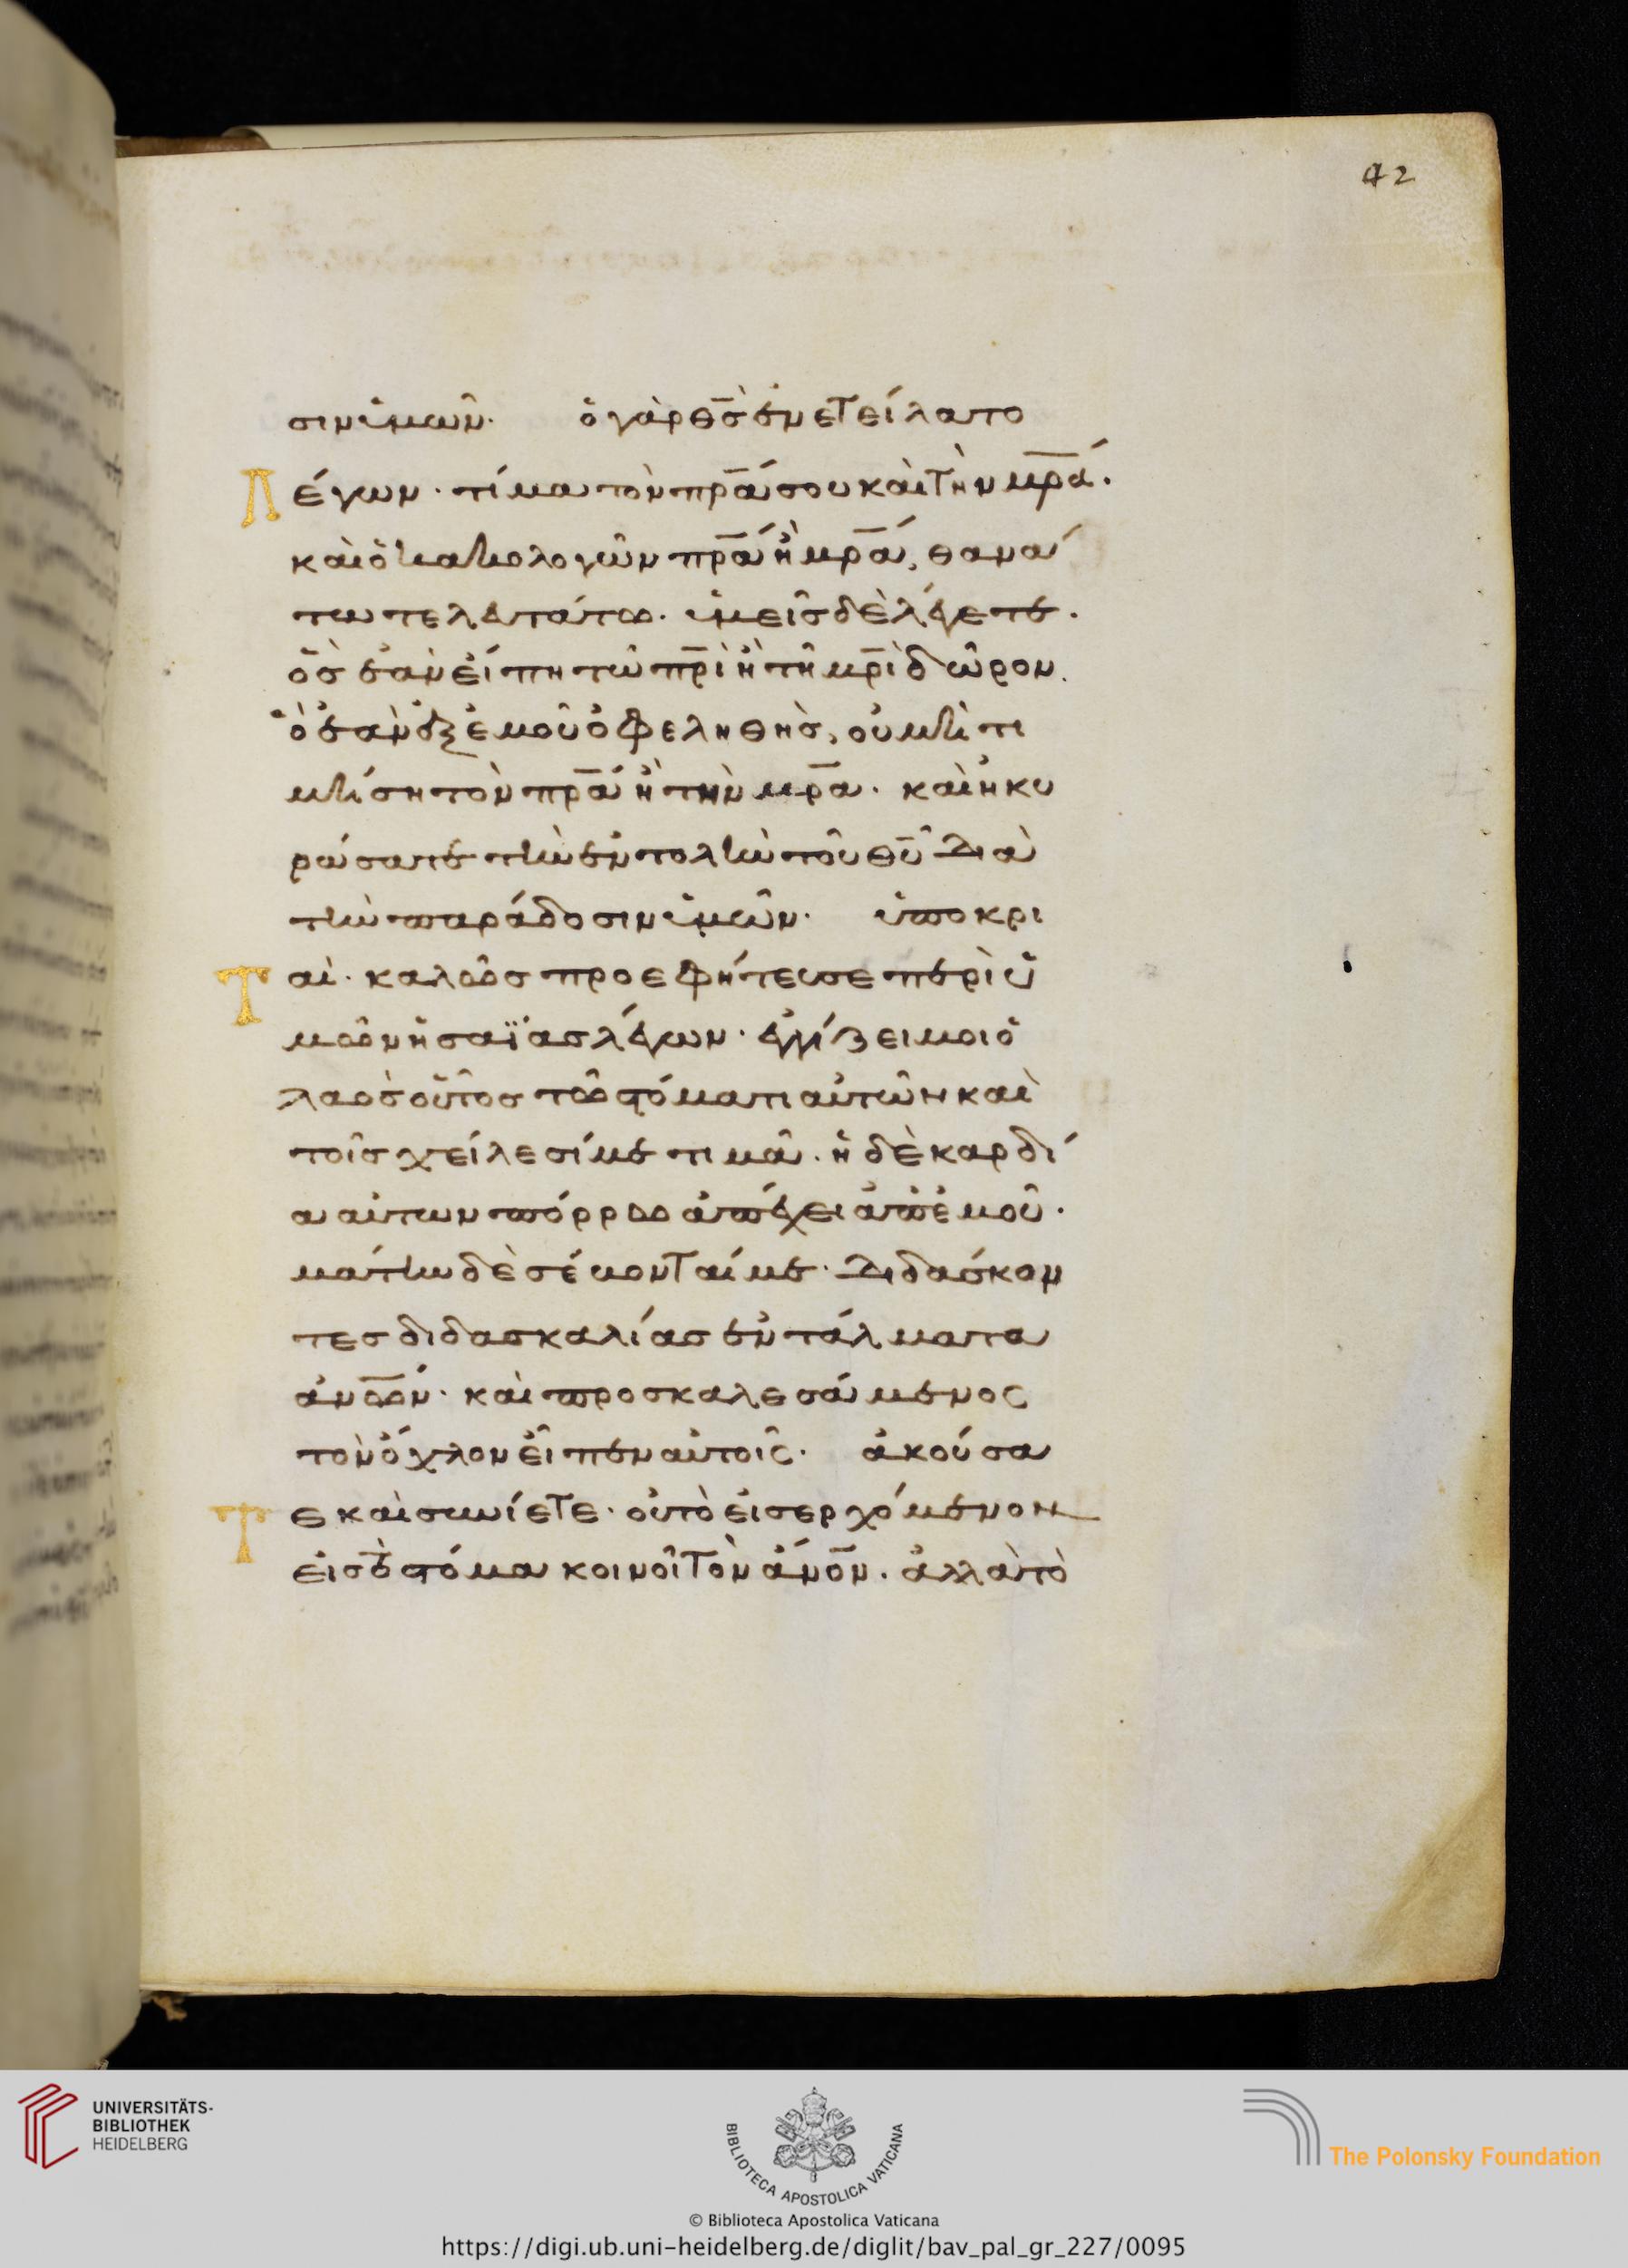 42
σιν ὑμῶν· ὁ γὰρ θ̅ς̅ ἐνετείλατο
Λέγων· τίμα τὸν π̅ρ̅α̅ σου καὶ τὴν μ̅ρ̅α̅·
καὶ ὁ κακολογῶν π̅ρ̅α̅ ἢ μ̅ρ̅α̅, θανά
τω τελευτάτω. ὑμεῖς δὲ λέγετε.
ὃς ἐὰν εἴπη τῶ π̅ρ̅ι̅ ἢ τῆ μ̅ρ̅ι̅ δῶρον.
ὃ ἐὰν ἐξ ἐμοῦ ὀφεληθῆς, οὐ μὴ τι
μήση τὸν π̅ρ̅α̅ ἢ τὴν μ̅ρ̅α̅. καὶ ἠκυ
ρώσατε τὴν ἐντολὴν τοῦ θ̅υ̅ διὰ
τὴν παράδοσιν ὑμῶν· ὑποκρι
Ταὶ· καλῶς προεφήτευσε περὶ ὑ
μῶν ἡσαΐας λέγων· ἐγγίζει μοι ὁ
λαὸς οὗτος τῶ στόματι αὐτῶν καὶ
τοῖς χείλεσί με τιμᾶ. ἡ δὲ καρδί
α αὐτων πόρρω ἀπέχει ἀπ᾽ ἐμοῦ.
μάτην δὲ σέβονταί με· διδάσκον
τες διδασκαλίας ἐντάλματα
ἀ̅ν̅ω̅ν̅· καὶ προσκαλεσάμενος
τὸν ὄχλον εἶπεν αὐτοῖς· ἀκούσα
Τε καὶ συνίετε· οὐ τὸ εἰσερχόμενον
εἰς τὸ στόμα κοινοῖ τὸν ἄ̅ν̅ο̅ν̅. ἀλλὰ τὸ
UNIVERSITÄTS-
BIBLIOTHEK
HEIDELBERG
BIBLIOTECA APOSTOLICA VATICANA
The Polonsky Foundation
© Biblioteca Apostolica Vaticana
https://digi.ub.uni-heidelberg.de/diglit/bav_pal_gr_227/0095